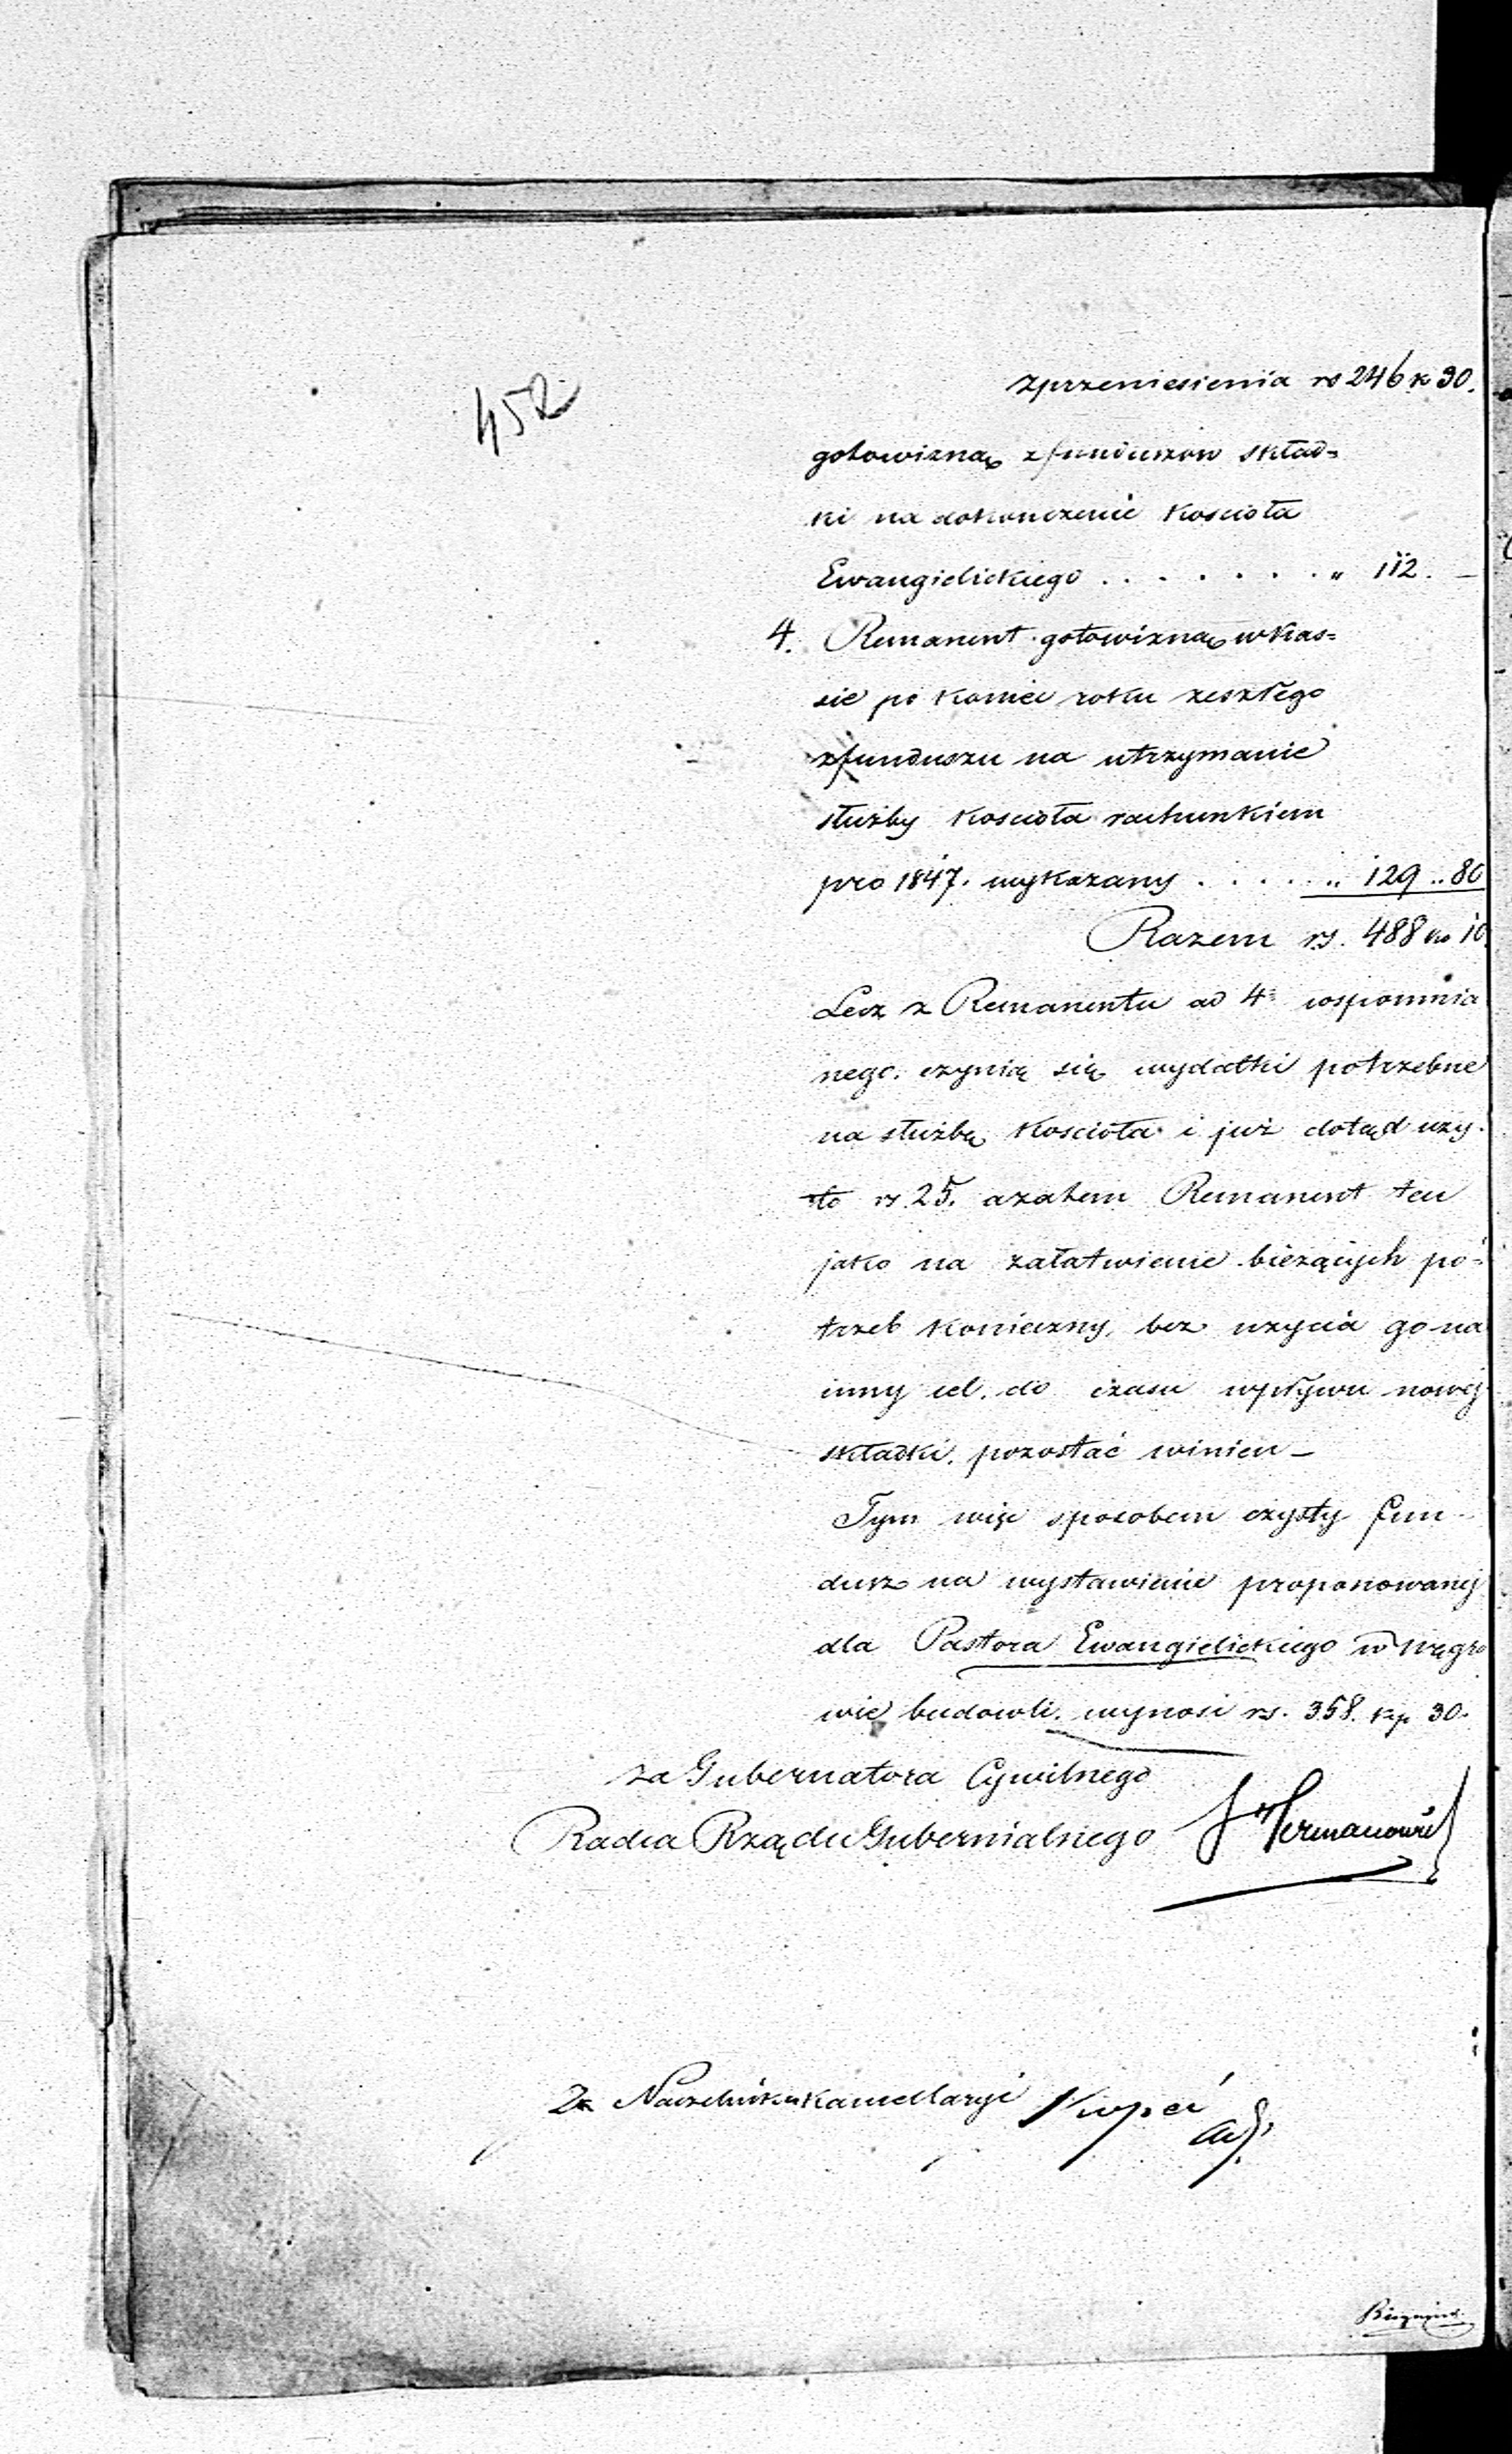 452
z przeniesienia rs 246 k 30.
gotowizną z funduszów skład=
ki na dokonczenie Koscioła
Ewangielickiego . . . . . . . „ 112. —
4. Remanent gotowizną w Kas=
sie po koniec roku zeszłego
z funduszu na utrzymanie
służby Koscioła rachunkiem
pro 1847. wykazany . . . . . „ 129 „ 80
Razem rs. 488 ko 10
Lecz z Remanentu ad 4. wspomnia
nego. czynią się wydatki potrzebne
na służbę Koscioła i już dotąd uży-
to rs. 25. a zatem Remanent ten
jako na załatwienie bieżących po=
trzeb konieczny, bez użycia go na
inny cel. do czasu wpływu nowej
składki, pozostać winien —
Tym więc sposobem czysty fun-
dusz na wystawienie proponowanej
dla Pastora Ewangielickiego w Węgro
wie budowli. wynosi rs. 358. kp 30.
za Gubernatora Cywilnego
Radca Rządu Gubernialnego J Hermanowicz
Za Naczelnika Kancellaryi